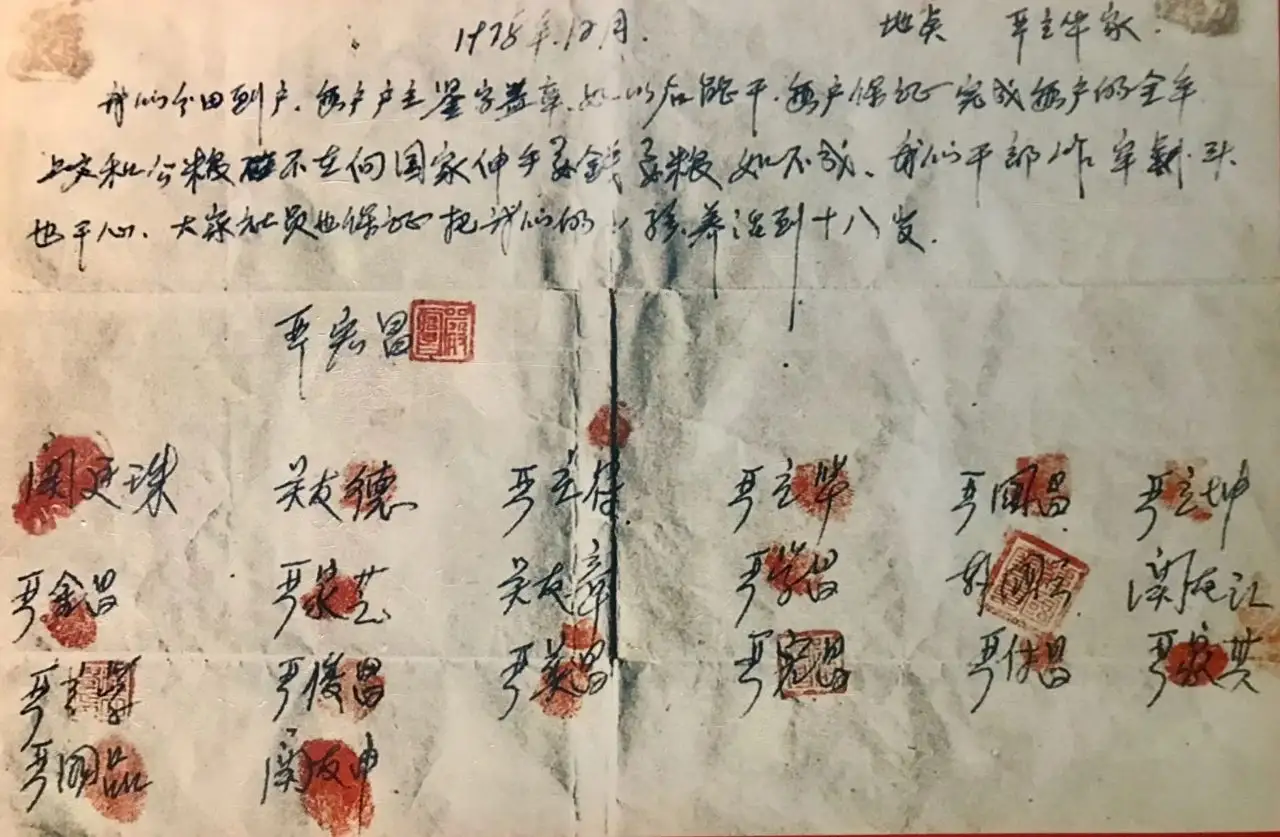 1978年12月. 地点 严立华家.
我们分田到户, 每户户主签字盖章, 如以后能干, 每户保证完成每户的全年
上交和公粮 不在向国家伸手要钱要粮 如不成, 我们干部作牢剎头
也干心, 大家社员也保证把我们的小孩养活到十八岁.
严宏昌
关廷珠 关友德 严立符 严立华 严国昌 严立坤
严金昌 严家芝 关友章 严学昌 韩国云 关友江
严立学 严俊昌 严美昌 严宏昌 严付昌 严家其
严国品 关友申